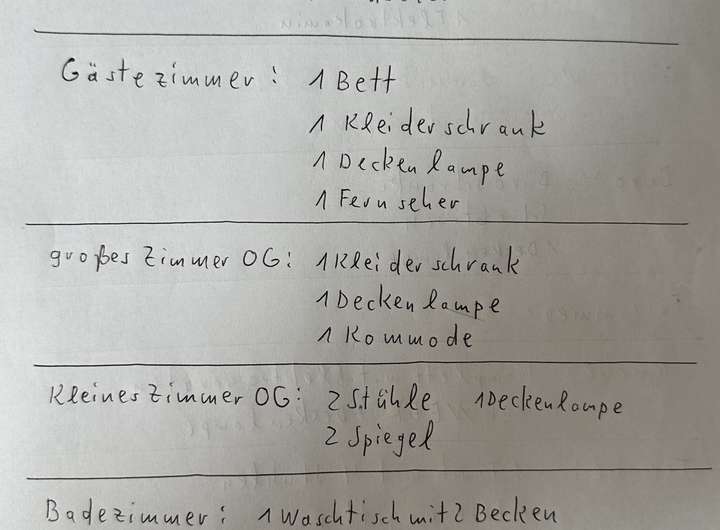 Gästezimmer: 1 Bett
1 Kleiderschrank
1 Deckenlampe
1 Fernseher
großes Zimmer OG: 1 Kleiderschrank
1 Deckenlampe
1 Kommode
Kleines Zimmer OG: 2 Stühle 1 Deckenlampe
2 Spiegel
Badezimmer: 1 Waschtisch mit 2 Becken